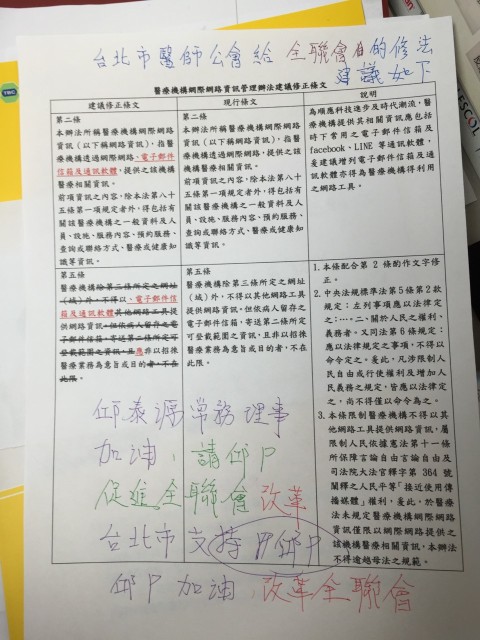 台北市醫師公會給 全聯會的修法
建議如下
醫療機構網際網路資訊管理辦法建議修正條文
建議修正條文
第二條
本辦法所稱醫療機構網際網路
資訊(以下稱網路資訊),指醫
療機構透過網際網路、電子郵件
信箱及通訊軟體,提供之該機構
醫療相關資訊。
前項資訊之內容,除本法第八十
五條第一項規定者外,得包括有
關該醫療機構之一般資料及人
員、設施、服務內容、預約服務、
查詢或聯絡方式、醫療或健康知
識等資訊。
現行條文
第二條
本辦法所稱醫療機構網際網路
資訊(以下稱網路資訊),指醫
療機構透過網際網路,提供之該
機構醫療相關資訊。
前項資訊之內容,除本法第八十
五條第一項規定者外,得包括有
關該醫療機構之一般資料及人
員、設施、服務內容、預約服務、
查詢或聯絡方式、醫療或健康知
識等資訊。
說明
為順應科技進步及時代潮流,醫
療機構提供其相關資訊應包括
時下常用之電子郵件信箱及
facebook、LINE 等通訊軟體,
爰建議增列電子郵件信箱及通
訊軟體亦得為醫療機構得利用
之網路工具。
第五條
醫療機構除第三條所定之網址
(域)外,不得以、電子郵件信
箱及通訊軟體其他網路工具提
供網路資訊,但依病人留存之電
子郵件信箱,寄送第二條所定可
登載範圍之資訊,且應非以招徠
醫療業務為意旨或目的者,不在
此限。
第五條
醫療機構除第三條所定之網址
(域)外,不得以其他網路工具
提供網路資訊,但依病人留存之
電子郵件信箱,寄送第二條所定
可登載範圍之資訊,且非以招徠
醫療業務為意旨或目的者,不在
此限。
1.本條配合第 2 條的作文字修
正。
2.中央法規標準法第5條第2款
規定:左列事項應以法律定
之:…。二、關於人民之權利、
義務者。又同法第 6 條規定:
應以法律規定之事項,不得以
命令定之。爰此,凡涉限制人
民自由或行使權利及增加人
民義務之規定,皆應以法律定
之,尚不得僅以命令為之。
3.本條限制醫療機構不得以其
他網路工具提供網路資訊,屬
限制人民依據憲法第十一條
所保障言論自由言論自由及
司法院大法官釋字第 364 號
闡釋之人民平等「接近使用傳
播媒體」權利,爰此,於醫療
法未規定醫療機構網際網路
資訊僅限以網際網路提供之
該機構醫療相關資訊,本辦法
不得逾越母法之規範。
邱泰源常務理事
加油,請邱P
促進全聯會 改革
台北市 支持 邱P
邱P加油 改革全聯會